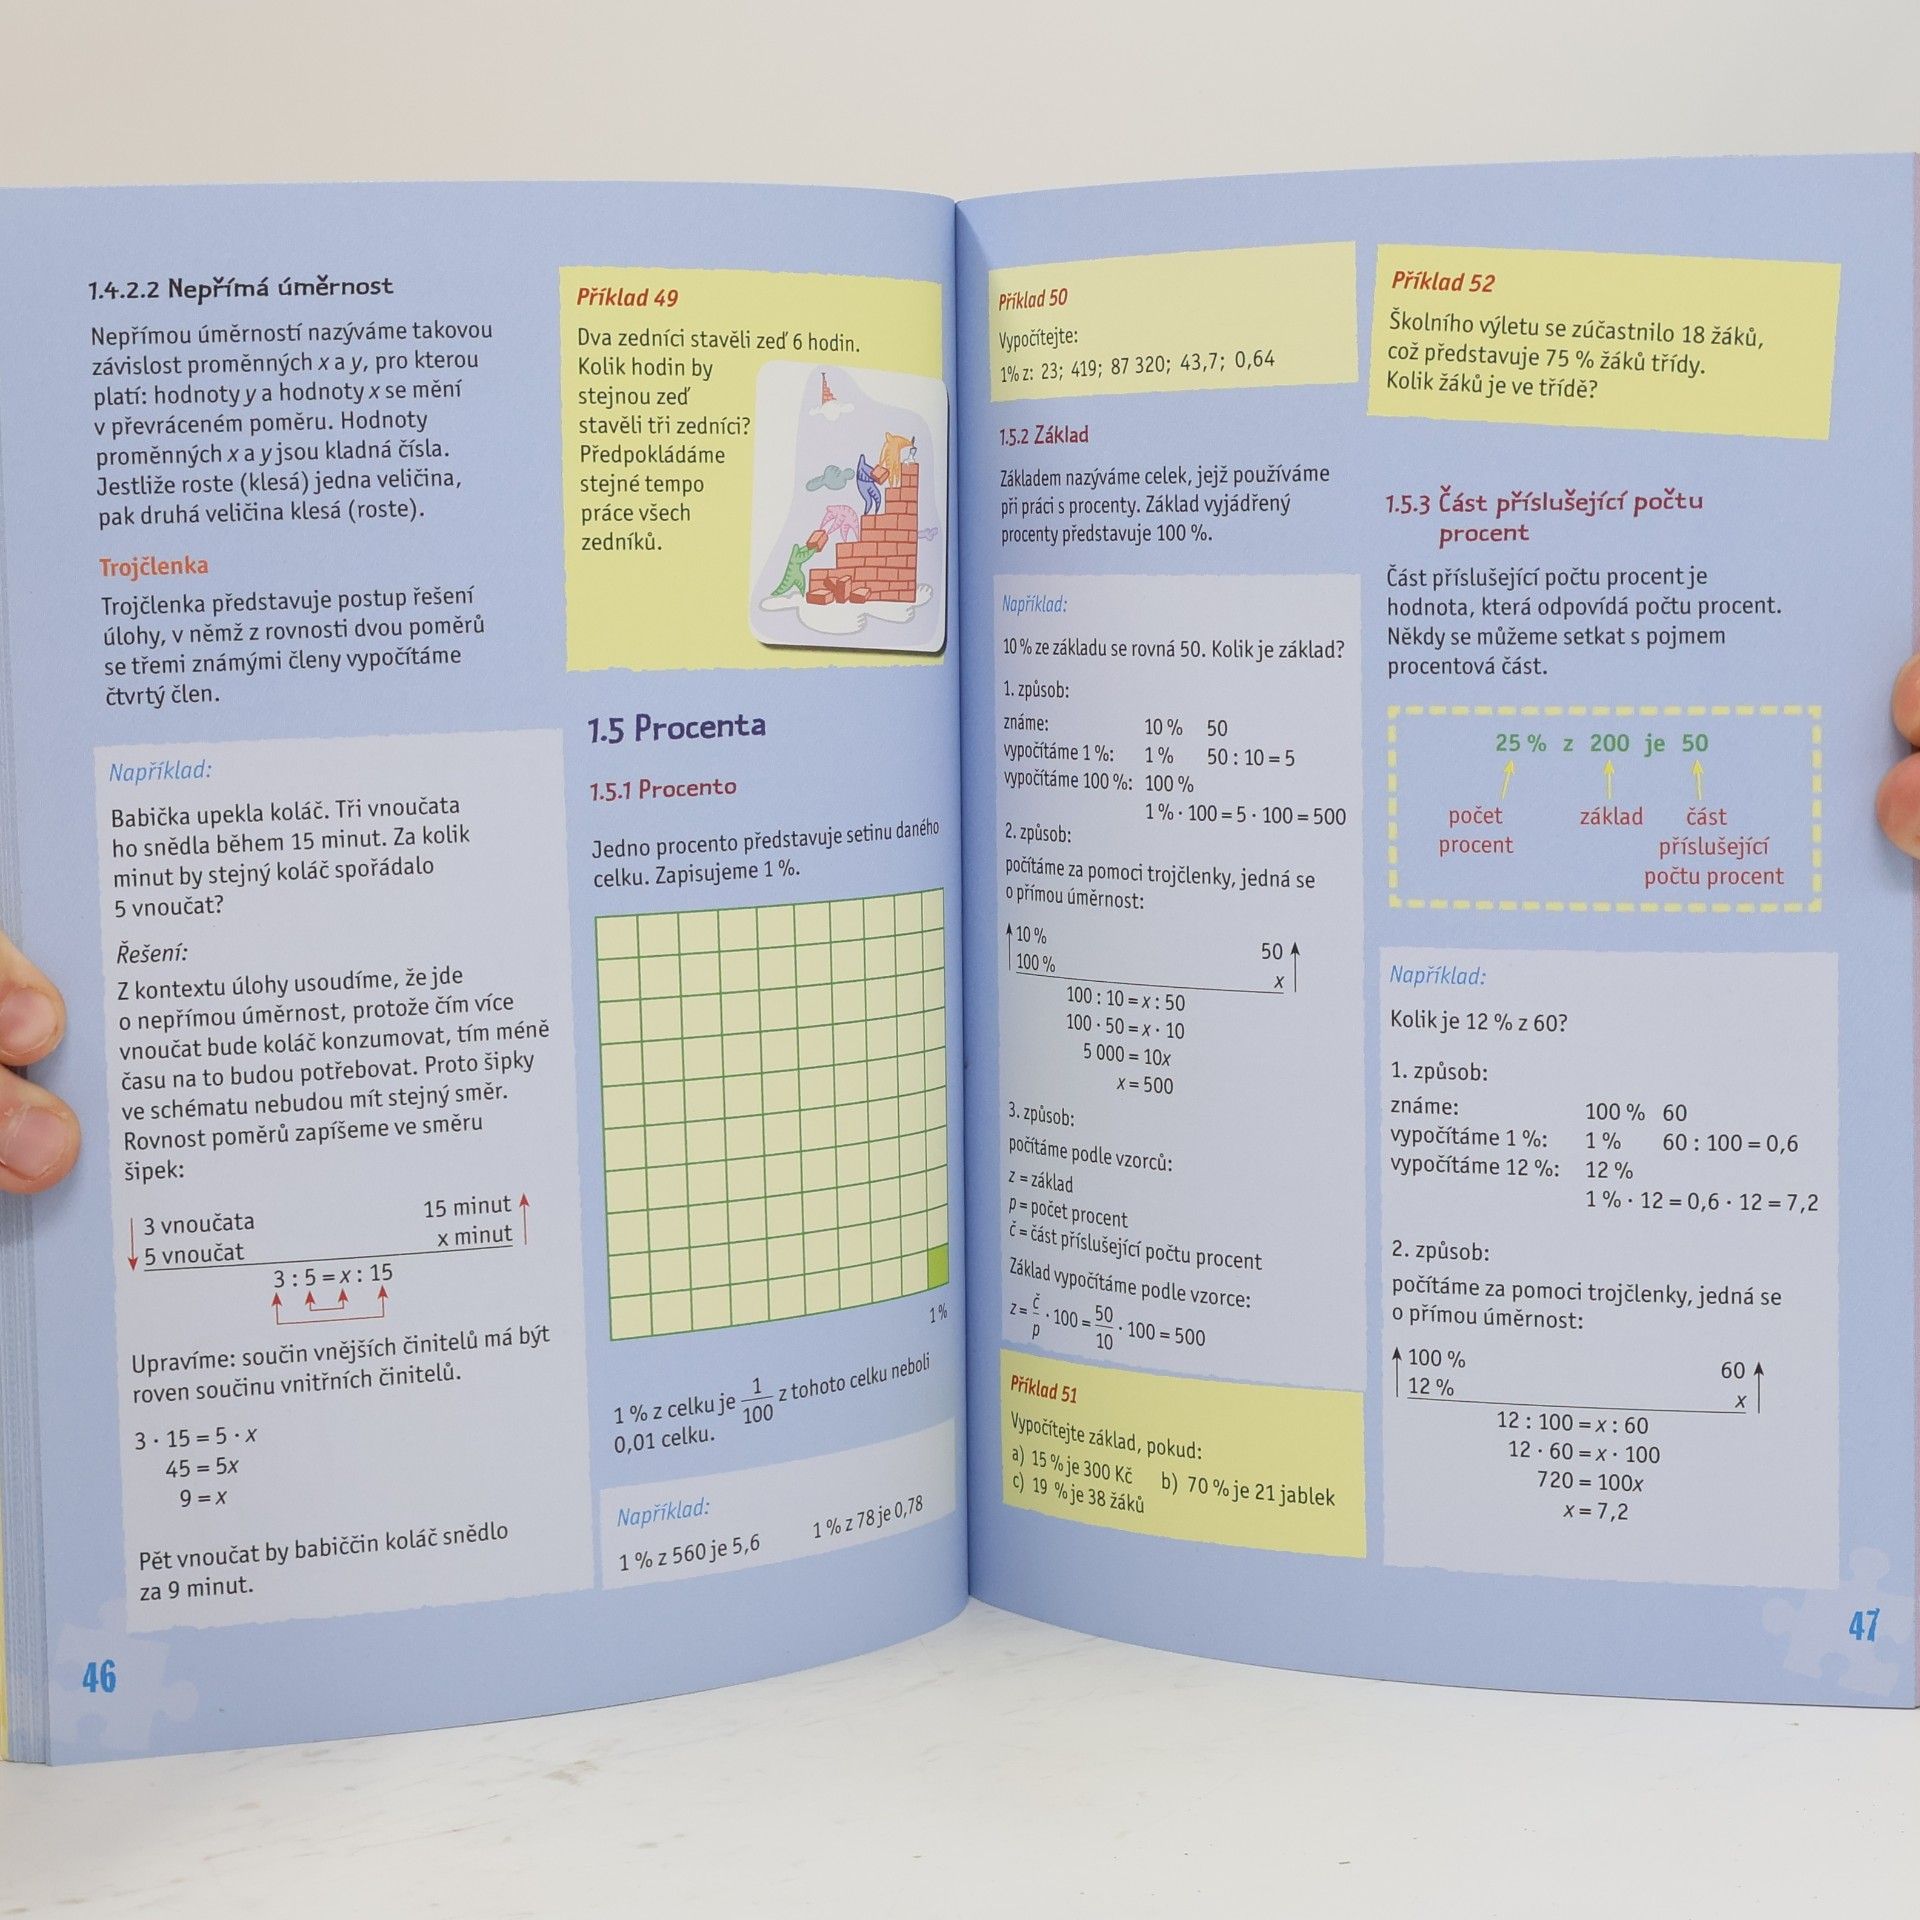 1.4.2.2 Nepřímá úměrnost
Nepřímou úměrností nazýváme takovou
závislost proměnných x a y, pro kterou
platí: hodnoty y a hodnoty x se mění
v převráceném poměru. Hodnoty
proměnných x a y jsou kladná čísla.
Jestliže roste (klesá) jedna veličina,
pak druhá veličina klesá (roste).
Trojčlenka
Trojčlenka představuje postup řešení
úlohy, v němž z rovnosti dvou poměrů
se třemi známými členy vypočítáme
čtvrtý člen.
Například:
Babička upekla koláč. Tři vnoučata
ho snědla během 15 minut. Za kolik
minut by stejný koláč spořádalo
5 vnoučat?
Řešení:
Z kontextu úlohy usoudíme, že jde
o nepřímou úměrnost, protože čím více
vnoučat bude koláč konzumovat, tím méně
času na to budou potřebovat. Proto šipky
ve schématu nebudou mít stejný směr.
Rovnost poměrů zapíšeme ve směru
šipek:
3 vnoučata 15 minut
5 vnoučat x minut
3 : 5 = x : 15
Upravíme: součin vnějších činitelů má být
roven součinu vnitřních činitelů.
3 · 15 = 5 · x
45 = 5x
9 = x
Pět vnoučat by babiččin koláč snědlo
za 9 minut.
46
Příklad 49
Dva zedníci stavěli zeď 6 hodin.
Kolik hodin by
stejnou zeď
stavěli tři zedníci?
Předpokládáme
stejné tempo
práce všech
zedníků.
1.5 Procenta
1.5.1 Procento
Jedno procento představuje setinu daného
celku. Zapisujeme 1 %.
1 %
1 % z celku je 1/100 z tohoto celku neboli
0,01 celku.
Například:
1 % z 560 je 5,6 1 % z 78 je 0,78
Příklad 50
Vypočítejte:
1% z: 23; 419; 87 320; 43,7; 0,64
1.5.2 Základ
Základem nazýváme celek, jejž používáme
při práci s procenty. Základ vyjádřený
procenty představuje 100 %.
Například:
10 % ze základu se rovná 50. Kolik je základ?
1. způsob:
známe: 10 % 50
vypočítáme 1 %: 1 % 50 : 10 = 5
vypočítáme 100 %: 100 %
1 % · 100 = 5 · 100 = 500
2. způsob:
počítáme za pomoci trojčlenky, jedná se
o přímou úměrnost:
10 % 50
100 % x
100 : 10 = x : 50
100 · 50 = x · 10
5 000 = 10x
x = 500
3. způsob:
počítáme podle vzorců:
z = základ
p = počet procent
č = část příslušející počtu procent
Základ vypočítáme podle vzorce:
z = č/p · 100 = 50/10 · 100 = 500
Příklad 51
Vypočítejte základ, pokud:
a) 15 % je 300 Kč b) 70 % je 21 jablek
c) 19 % je 38 žáků
Příklad 52
Školního výletu se zúčastnilo 18 žáků,
což představuje 75 % žáků třídy.
Kolik žáků je ve třídě?
1.5.3 Část příslušející počtu
procent
Část příslušející počtu procent je
hodnota, která odpovídá počtu procent.
Někdy se můžeme setkat s pojmem
procentová část.
25 % z 200 je 50
počet základ část
procent příslušející
počtu procent
Například:
Kolik je 12 % z 60?
1. způsob:
známe: 100 % 60
vypočítáme 1 %: 1 % 60 : 100 = 0,6
vypočítáme 12 %: 12 %
1 % · 12 = 0,6 · 12 = 7,2
2. způsob:
počítáme za pomoci trojčlenky, jedná se
o přímou úměrnost:
100 % 60
12 % x
12 : 100 = x : 60
12 · 60 = x · 100
720 = 100x
x = 7,2
47